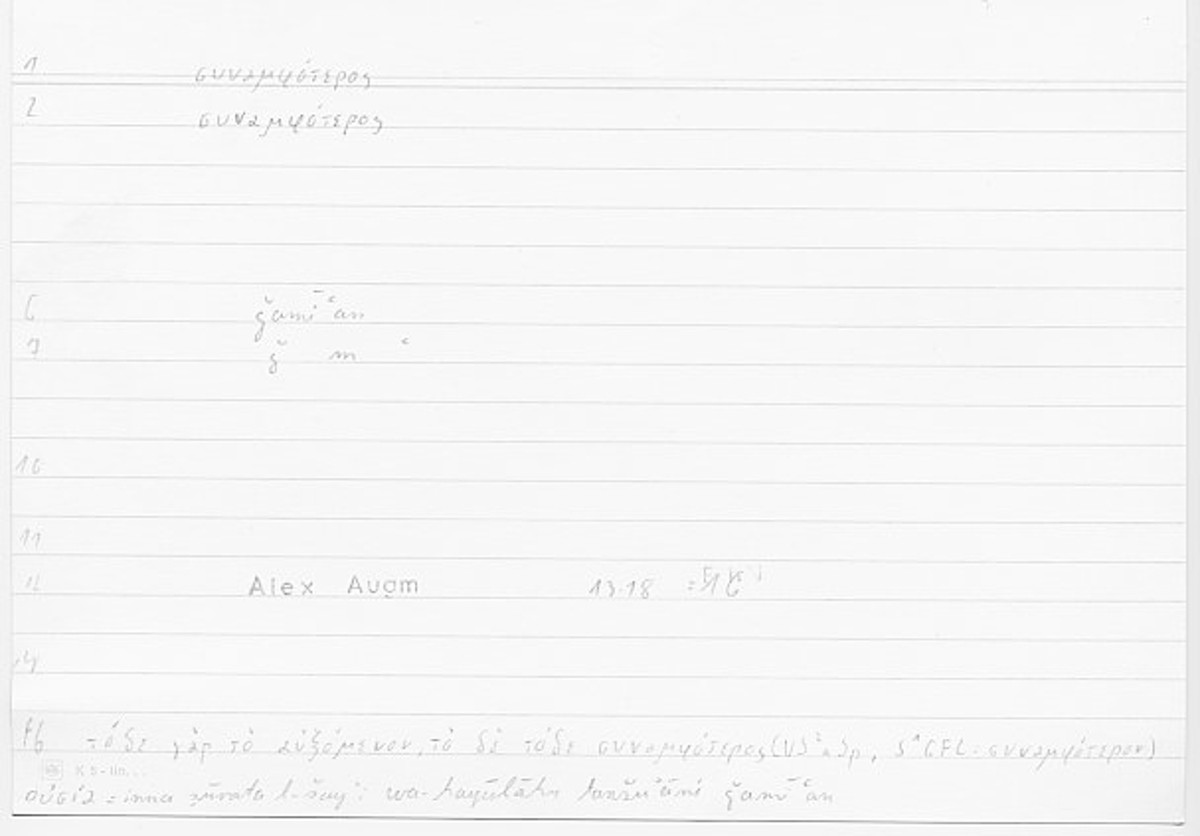 1 συναμφότερος
2 συναμφότερος
6 ǧamīʿan
7 ǧ m ʿ
10
11
12 Alex Augm 13.18
14
τόδε γὰρ τὸ αὐξόμενον, τὸ δὲ τόδε συναμφότερος (V), συναμφότερον)
οὐσία = inna ṣūrata l-šayʾi wa-hayūlāhu ǧamīʿan